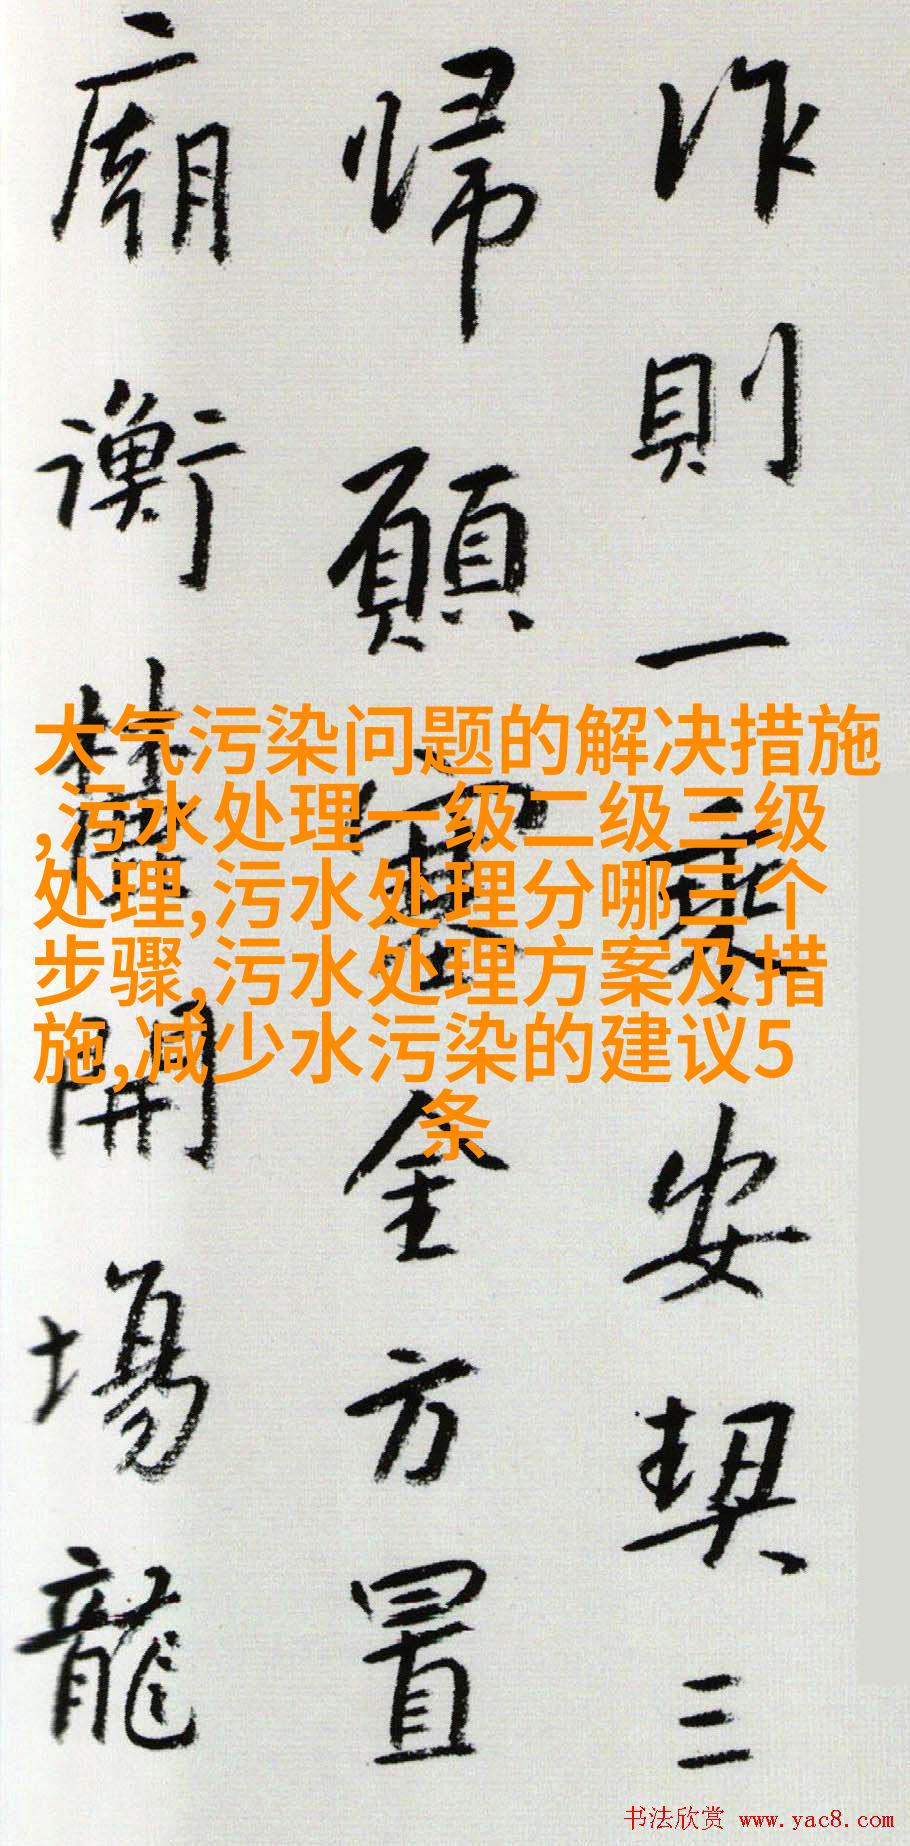 作則一乘安契三
歸願全方置
廟衡開場龍
大气污染问题的解决措施
,污水处理一级二级三级
处理,污水处理分哪三个
步骤,污水处理方案及措
施,减少水污染的建议5
条
书法欣赏 www.yac8.com